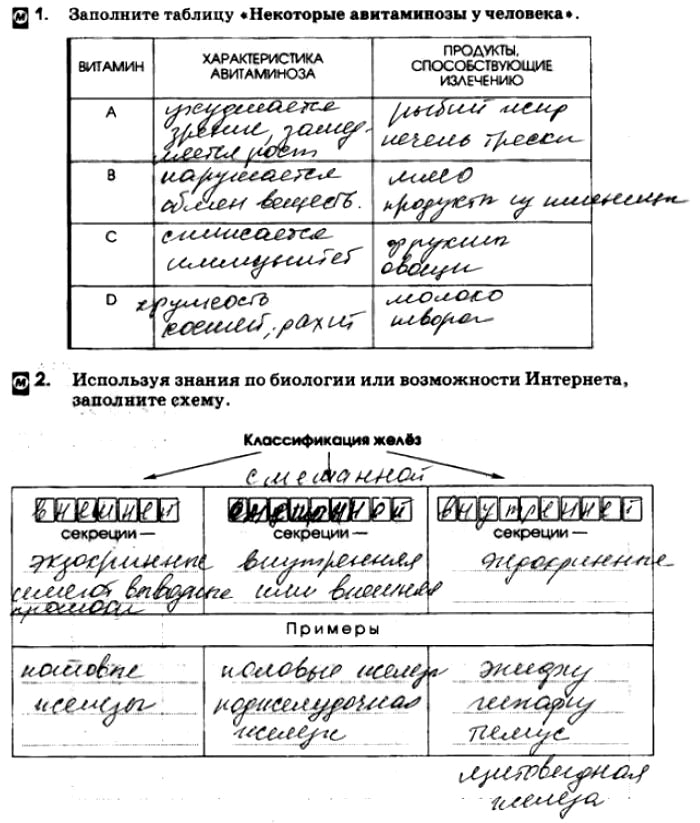 м 1. Заполните таблицу «Некоторые авитаминозы у человека».
ВИТАМИН
ХАРАКТЕРИСТИКА АВИТАМИНОЗА
ПРОДУКТЫ, СПОСОБСТВУЮЩИЕ ИЗЛЕЧЕНИЮ
A
ухудшается
зрение, замед-
ляется рост
рыбий жир
печень трески
B
нарушается
обмен веществ.
мясо
продукты из пшеницы
C
снижается
иммунитет
фрукты
овощи
D
хрупкость
костей, рахит
молоко
творог
м 2. Используя знания по биологии или возможности Интернета,
заполните схему.
Классификация желёз
смешанной
внешней
секреции —
экзокринные
имеют выводные
протоки
смешанной
секреции —
внутренняя
или внешняя
внутренней
секреции —
эндокринные
Примеры
потовые
железы
половые железы
поджелудочная
железа
эпифиз
гипофиз
тимус
щитовидная
железа